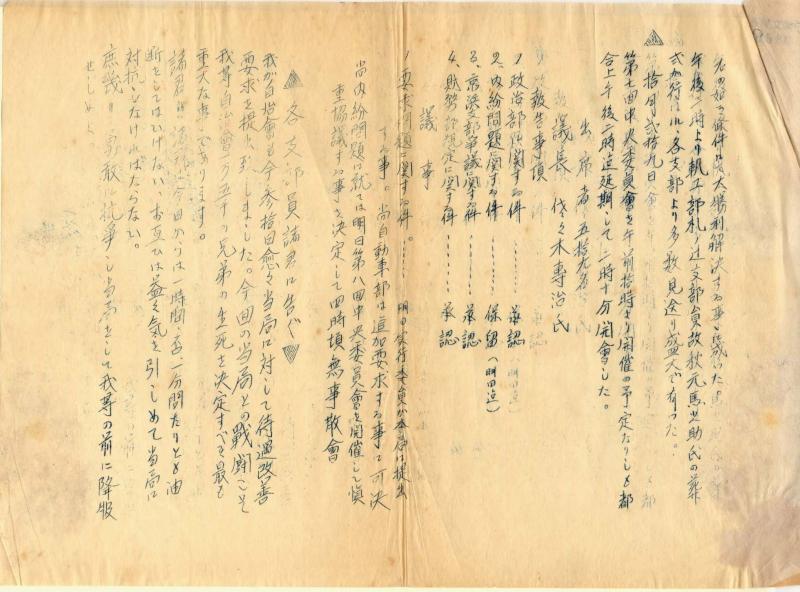 年後一時より軌工部札ノ辻支部員故秋元馬之助氏の葬
式が行はれ、各支部より多数見送り盛大で有つた。
第拾月弐拾九日
第七回中央委員會を午前拾時より開催の予定なりしも都
合上午後二時迄延期して二時十分開會した。
出席者五拾九名
議長 佐々木專治氏
報告事項
1、政治部 に関する件 …… 承認
2、内紛問題に関する件 …… 保留（明日迄）
3、京浜支部爭議に関する件 …… 承認
4、財務部規定に関する件 …… 承認
議事
1、要求問題に関する件 …… 明日実行委員が本局に提出
する事。尚自動車部は追加要求する事で可決
尚内紛問題に就ては明日第八回中央委員會を開催して慎
重協議する事を決定して四時頃無事散會
各支部員諸君に告ぐ
我が自治會も今参拾日愈々当局に対して待遇改善
要求を提出致しました。今回の当局との戰鬪こそ
我等自治會一万五千の兄弟の生死を決定すべき最も
重大な事であります。
諸君 今日からは一時間、否、一分間たりとも油
断をしてはいけない、お互ひは益々気を引しめて当局に
対抗しなければならない。
庶幾くは勇敢に抗爭し当局をして我等の前に降服
せしめよ